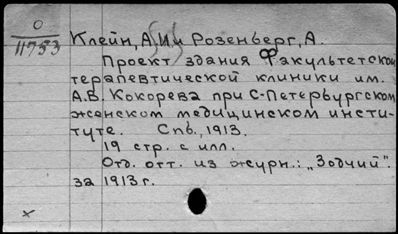 О
11753
Клейн, А. И и Розенберг, А.
Проект здания Факультетской
терапевтической клиники им.
А.В. Кокорева при С-Петербургском
женском медицинском инсти-
туте. Спб., 1913.
19 стр. с илл.
Отд. отт. из журн.: „Зодчий".
за 1913 г.
x